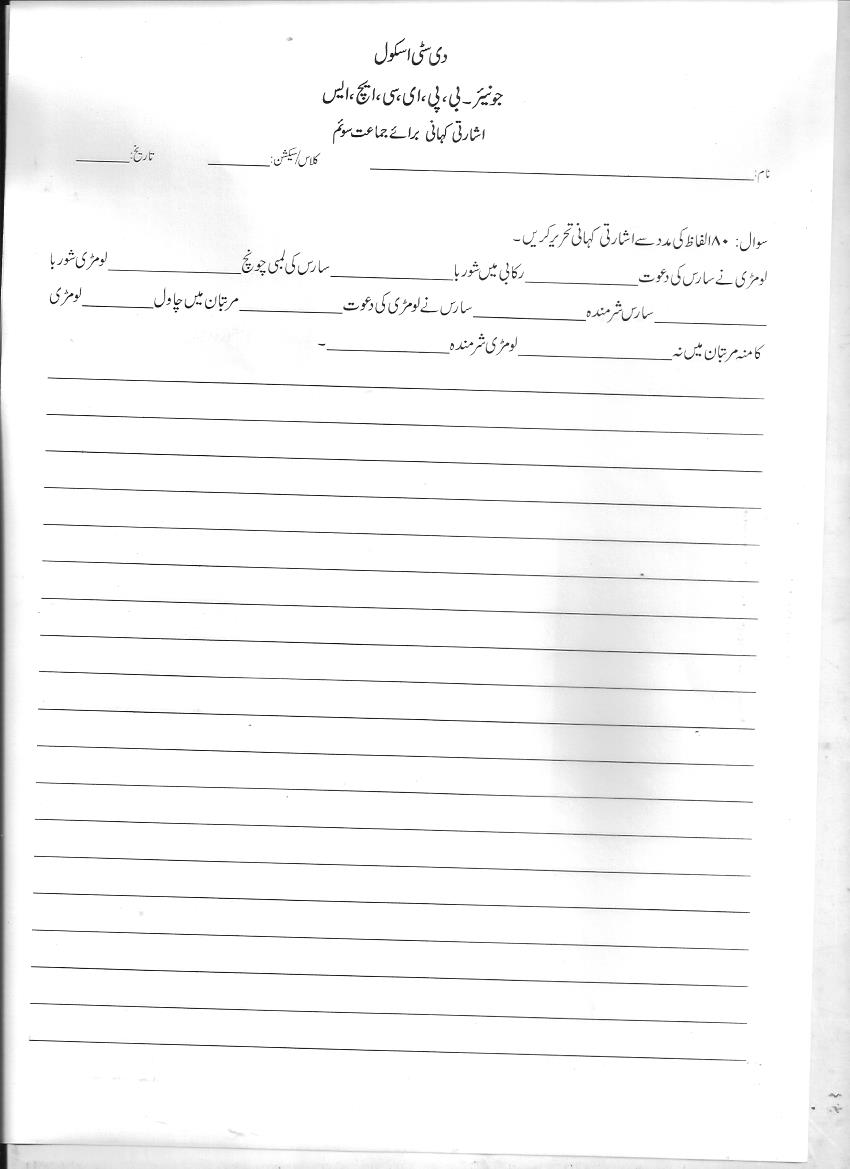 دی سٹی اسکول
جونیئر۔ بی، پی، ای، سی، ایچ، ایس
اشارتی کہانی برائے جماعت سوئم
نام:______________ کلاس/سیکشن:______ تاریخ:______
سوال: ۸۰ الفاظ کی مدد سے اشارتی کہانی تحریر کریں۔
لومڑی نے سارس کی دعوت __________ رکابی میں شوربا __________ سارس کی لمبی چونچ __________ لومڑی شوربا
__________ سارس شرمندہ __________ سارس نے لومڑی کی دعوت __________ مرتبان میں چاول __________ لومڑی
کا منہ مرتبان میں نہ __________ لومڑی شرمندہ __________ ۔